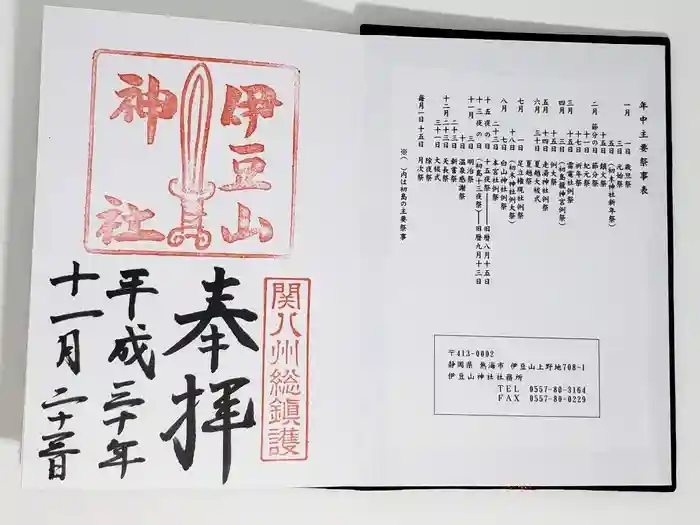 年中主要祭事表
一月 一日 歳旦祭
三日 元始祭
(初木神社新年祭)
十五日 鎮火祭
二月 節分の日 節分祭
十一日 紀元祭
十七日 祈年祭
三月 十五日 雷電社例祭
四月 三日 (初島龍神宮例祭)
十五日 例大祭
五月 四日 走湯神社例祭
六月 三十日 夏越大祓式
夏越祭
七月 一日 足立権現社例祭
十八日 (初木神社例大祭)
八月 七日 白山神社例祭
二十三日 本宮社例祭
十五夜の日 十五夜祭――旧暦八月十五日
十三夜の日 (初島十三夜祭)―旧暦九月十三日
十一月 三日 明治祭
十日 温泉感謝祭
二十三日 新嘗祭
十二月 二十三日 天長祭
三十一日 大祓式
除夜祭
毎月一日十五日 月次祭
※( )内は初島の主要祭事
〒413-0002
静岡県 熱海市 伊豆山上野地708-1
伊豆山神社社務所
TEL 0557-80-3164
FAX 0557-80-0229
伊豆山
神社
関八州総鎮護
奉拝
平成三十年
十一月二十三日